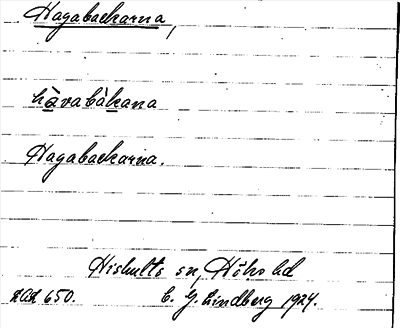 Hagabackarna,
hàrabàkana
Hagabackarna.
Hishults sn, Höks hd
E. G. Lindberg 1924.